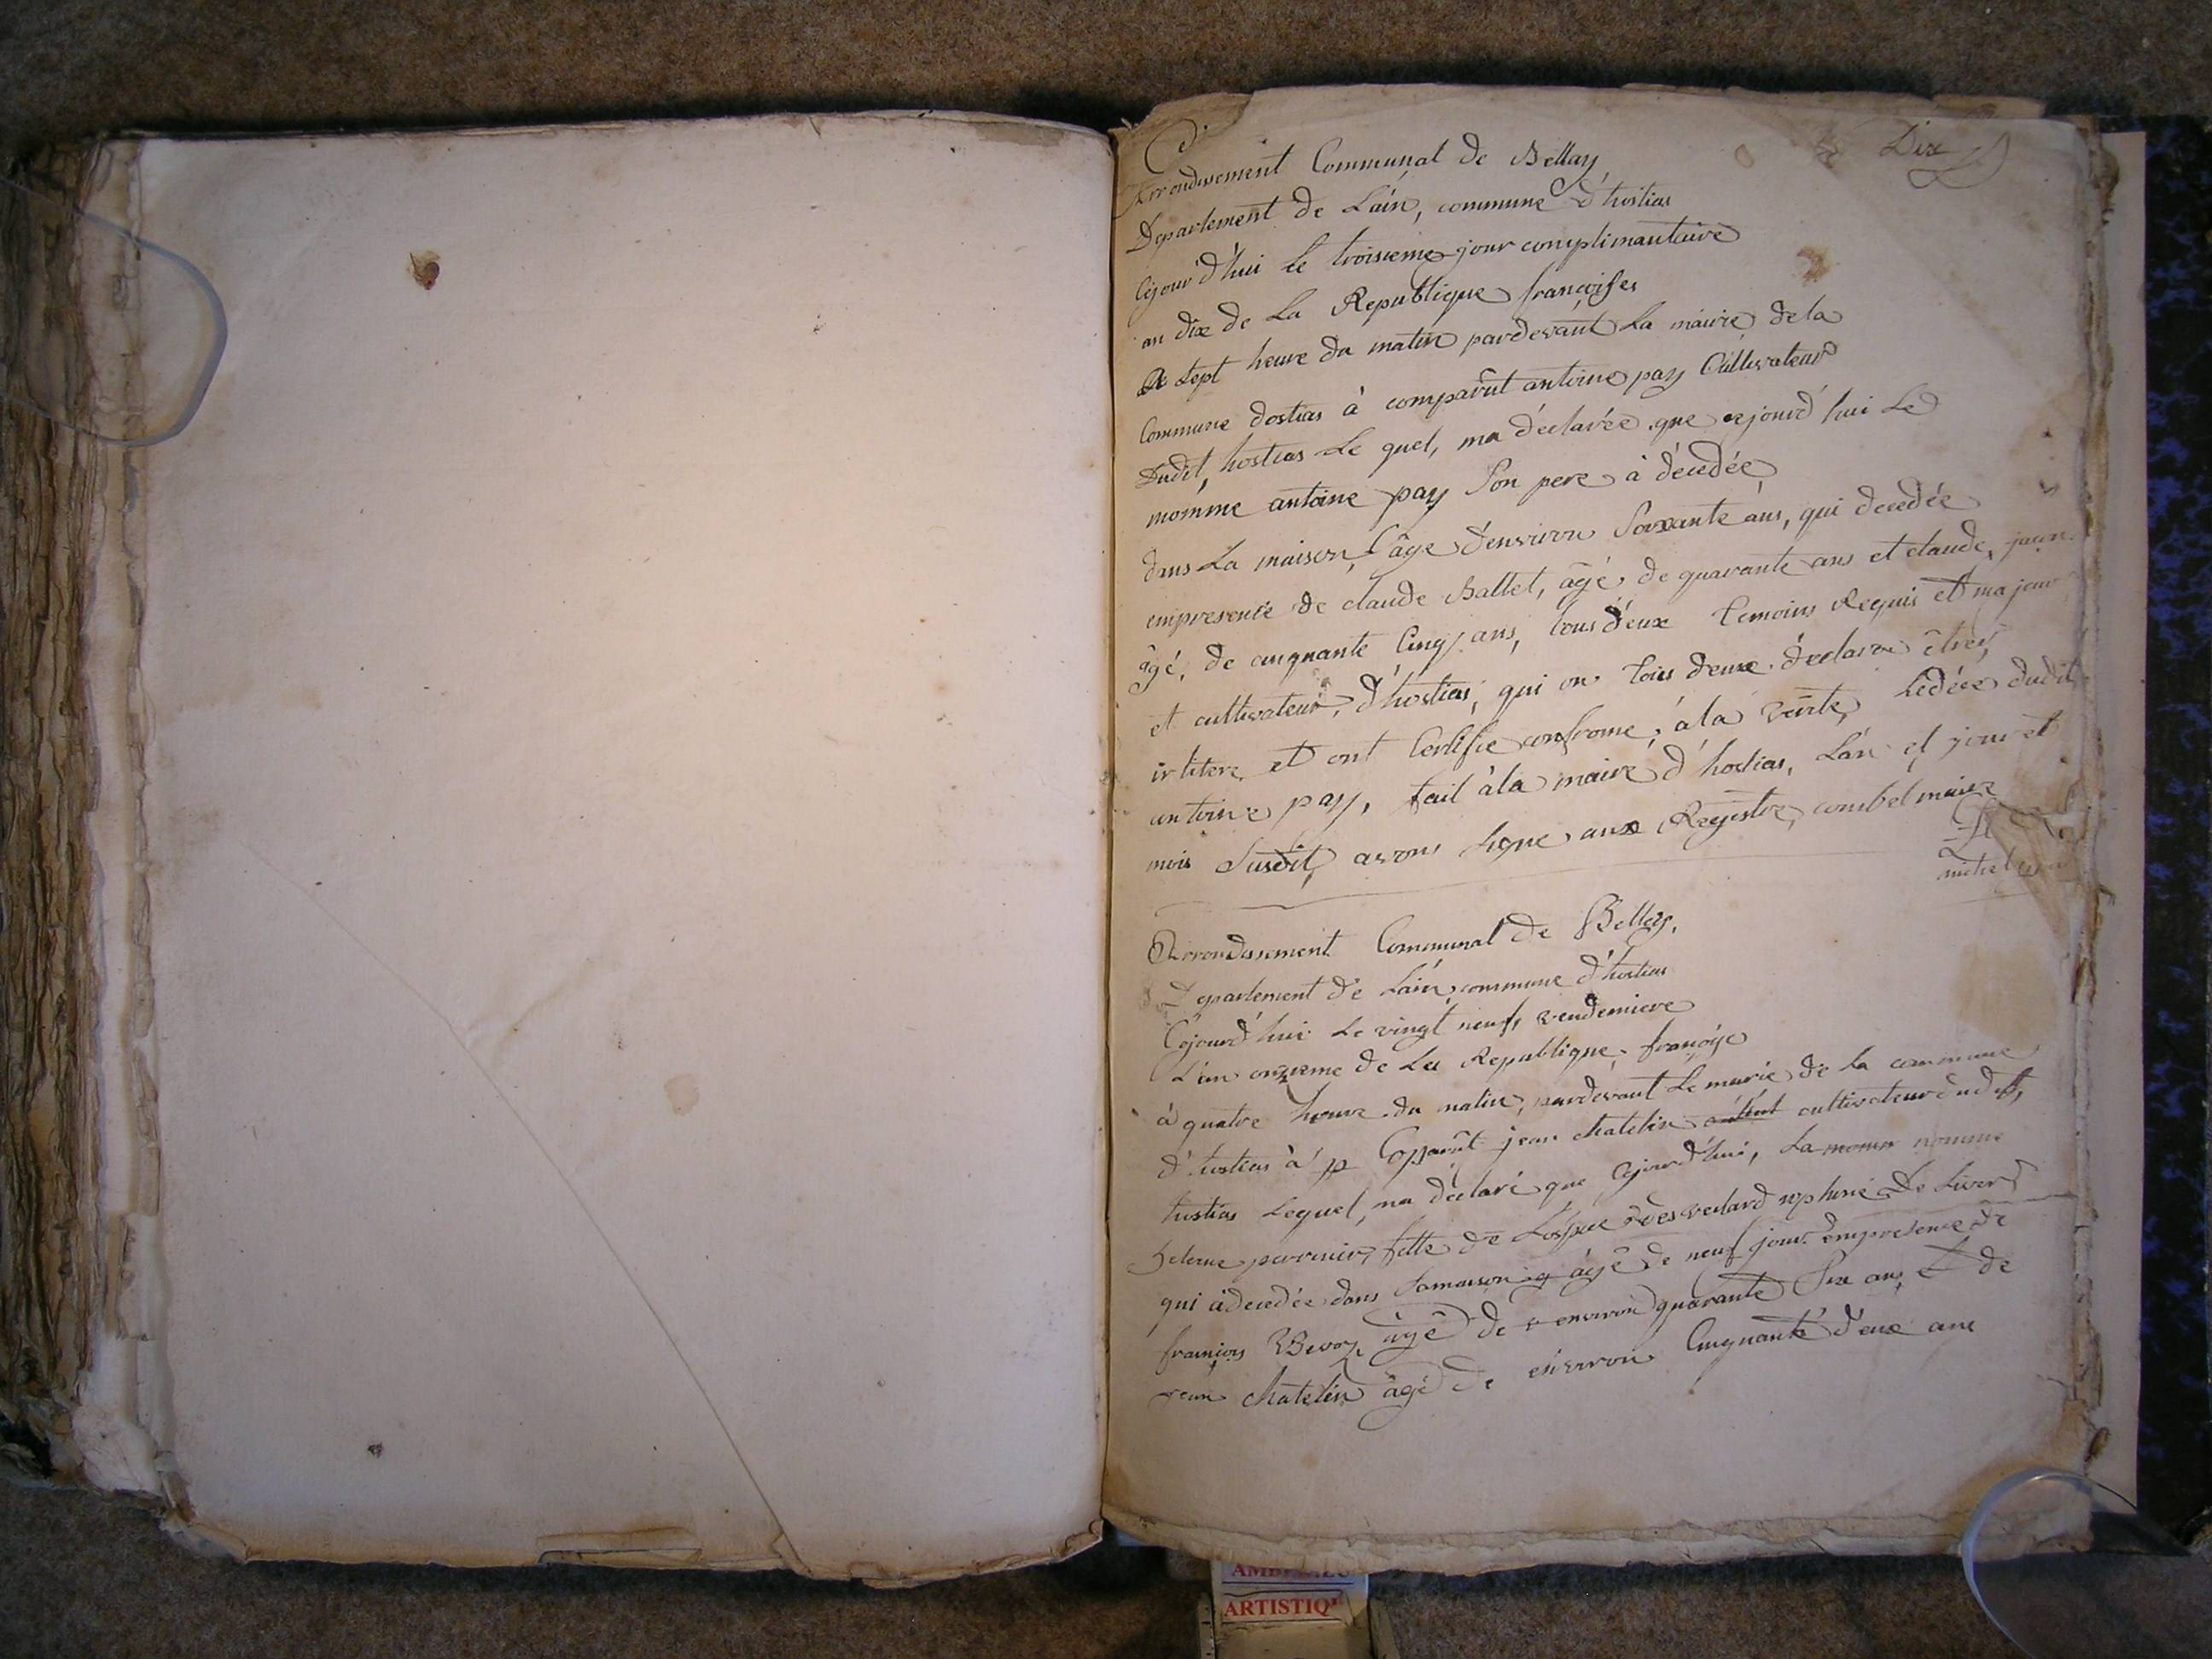 Dix
Arrondissement Communal de Bellay
Departement de Lain, commune d'hostias
Cejourd'hui le troisieme jour complimantaire
an dix de La Republique françoises
A Sept heure du matin pardevant La mairie dela
Commune dostias à comparut antoine pay Cultivateur
Dudit hostias Le quel, ma déclarée que cejourd'hui Le
nommé antoine pay Son pere à décédée
dans La maison, âge d'environ Soixante ans, qui decedée
empresence de claude Ballet, âgé de quarante ans et claude
âgé, de cinquante Cinq ans, tous deux temoins Requis et majeur
et cultivateur, d'hostias, qui on tous deux declare être
ilitere et ont Certifie confrome, à la verite Ledéce dudit
antoine pay, fait àla maire d'hostias, Lan et jour et
mois Susdit, avons signe aux Registre, combet maire
michel
Arrondissement Communal de Belley,
Departement de Lain commune d'hostias
Cejourd'hui Le vingt neuf vendemiere
L'an onzieme de La Republique françoise
à quatre heure du matin, pardevant Le mairie de la commune
d'hostias à p Coparut jean chatelin cultivateur dudit
hostias Lequel, ma déclaré que Cejourd'hui, La nomme
helene perrenier, fille de
qui àdecedée dans Samaison q âgé de neuf jour empresence de
françois âgé de environ quarante Six ans, et de
jean chatelin âgé de environ Cinquante deux ans
ARTISTIQ